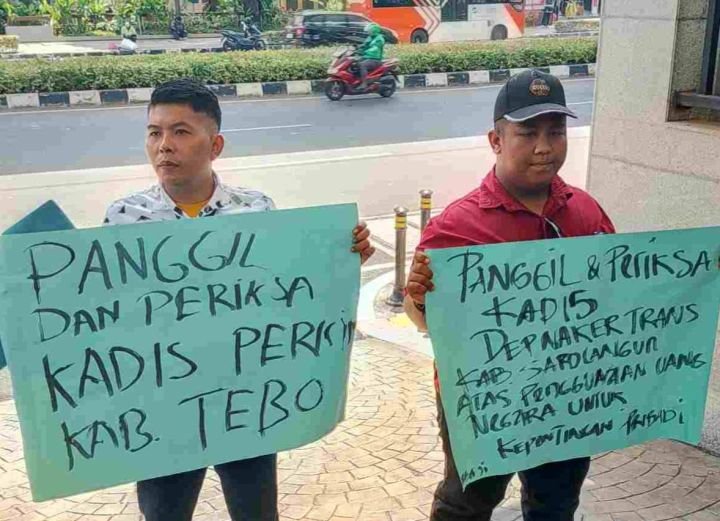 PANGGIL
DAN PERIKSA
KADIS PERKIM
KAB. TEBO
PANGGIL & PERIKSA
KADIS
DEPNAKERTRANS
KAB. SAROLANGUN
ATAS PENGGUNAAN UANG
NEGARA UNTUK
KEPENTINGAN PRIBADI